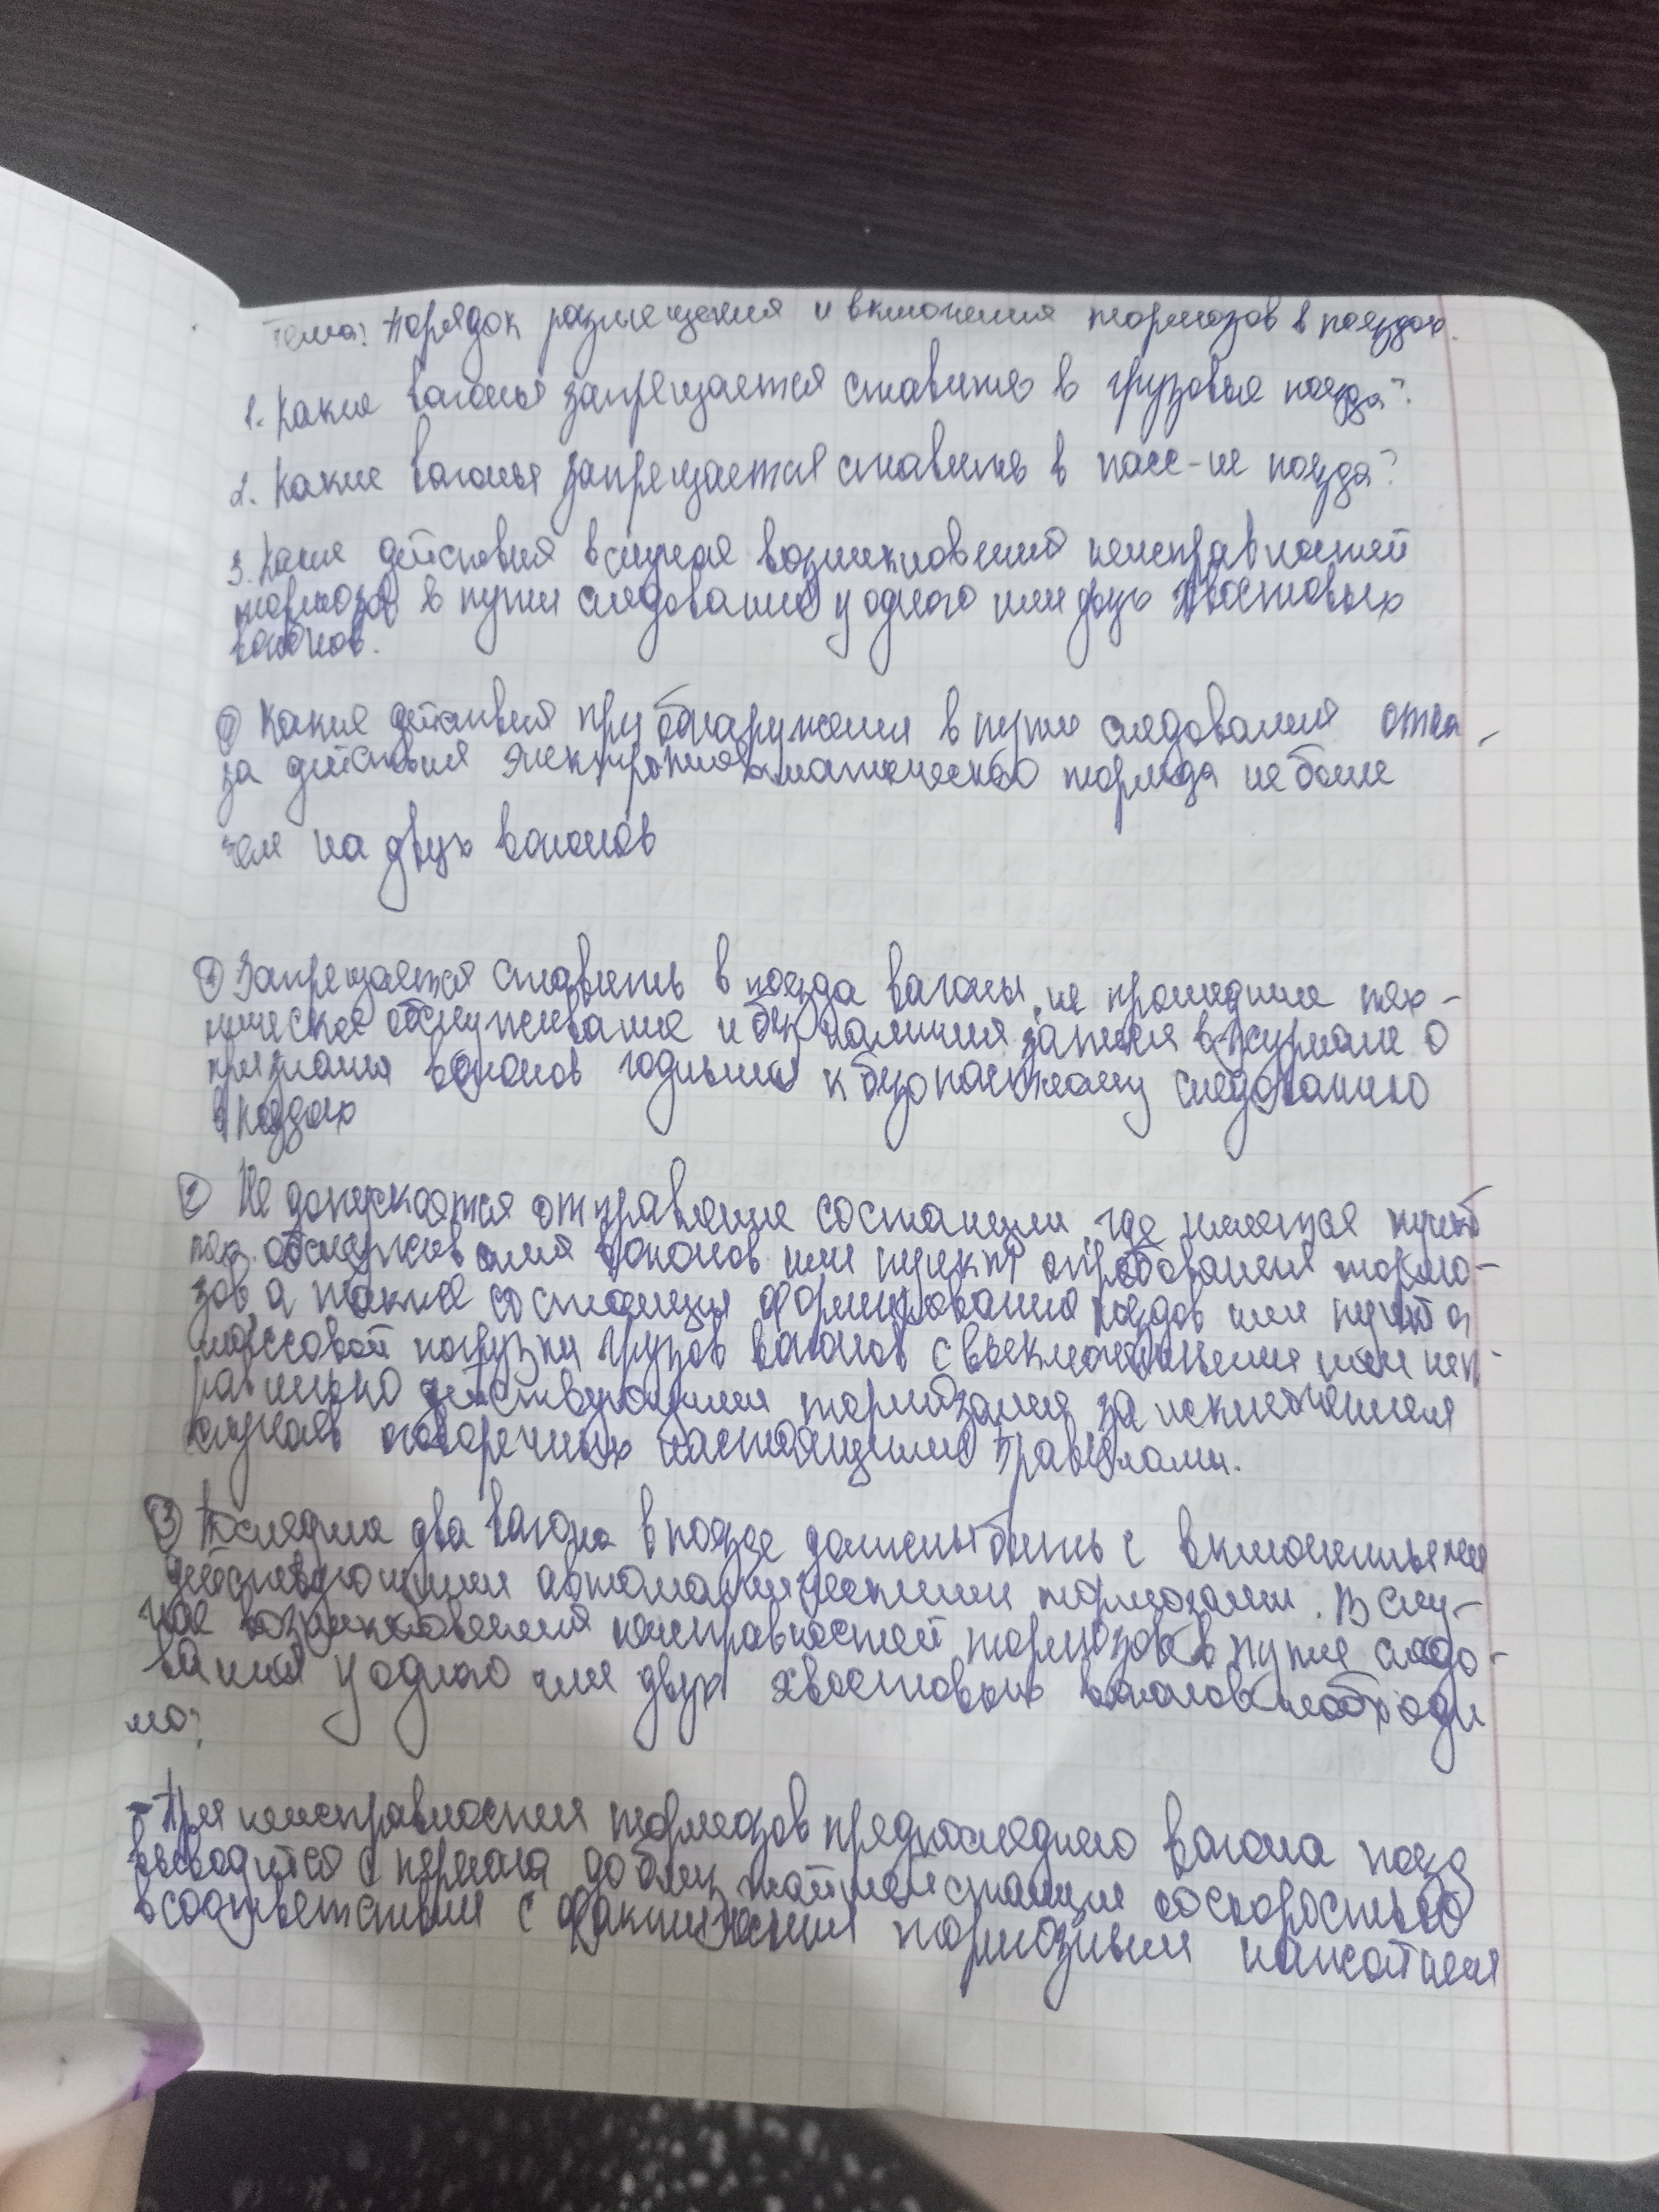 Тема: Порядок размещения и включения тормозов в поездах.
1. Какие вагоны запрещается ставить в грузовые поезда?
2. Какие вагоны запрещается ставить в пасс-ие поезда?
3. Какие действия в случае возникновений неисправностей
тормозов в пути следования у одного или двух хвостовых
вагонов.
④ Какие действия при обнаружении в пути следования отка-
за действия электропневматического тормоза не более
чем на двух вагонов
① Запрещается ставить в поезда вагоны, не прошедшие тех-
ническое обслуживание и без наличия записи в журнале о
признания вагонов годными к безопастному следованию
в поездах
② Не допускается отправление со станции, где имеется пункт
тех. обслуживания вагонов или пункт опробования тормо-
зов а также со станции формирования поездов или пункта
массовой погрузки грузов вагонов с выключенными или неп-
равильно действующими тормозами за исключением
случаев оговоречных настоящими правилами.
③ Последние два вагона в поезде должны быть с включенными
действующими автоматическими тормозами. В слу-
чае возникновения неисправностей тормозов в пути следо-
вания у одного или двух хвостовых вагонов необходи
мо:
- При неисправности тормозов предпоследнего вагона поезд
выводится с перегона до ближайшей станции со скоростью
в соответствии с фактическим тормозным нажатием